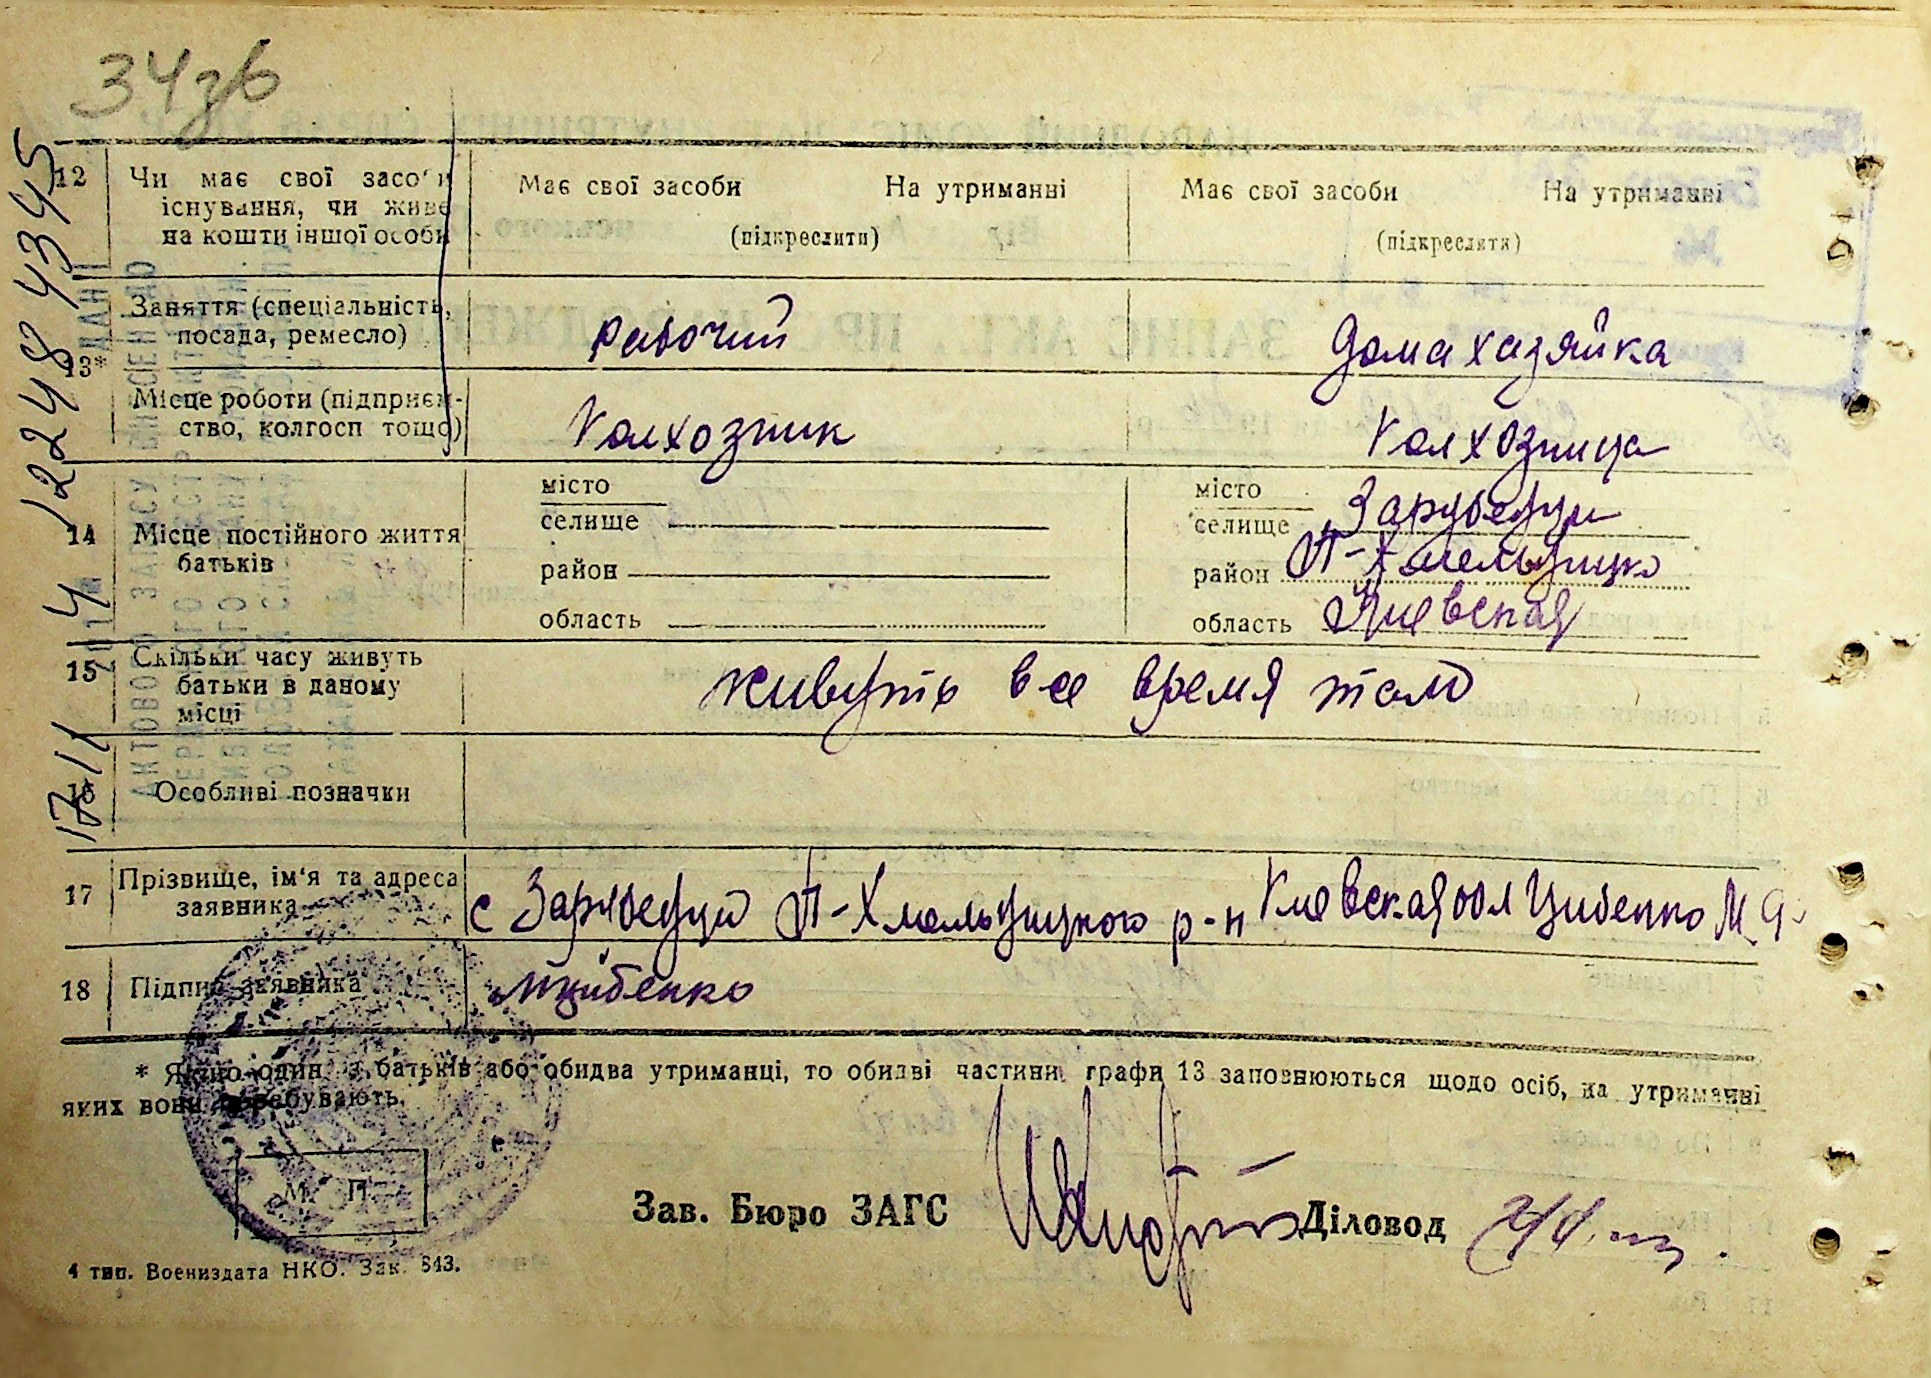 34зв
12 Чи має свої засоби Має свої засоби На утриманні Має свої засоби На утриманні
існування, чи живе
на кошти іншої особи (підкреслити) (підкреслити)
13* Заняття (спеціальність, рабочий дома хазяйка
посада, ремесло)
Місце роботи (підприєм- Колхозник Колхозница
ство, колгосп тощо)
14 Місце постійного життя
батьків
місто місто
селище селище Зарубенци
район район П-Хмельницко
область область Киевская
15 Скільки часу живуть
батьки в даному живуть все время там
місці
16 Особливі позначки
17 Прізвище, ім'я та адреса
заявника с Зарубенци П-Хмельницкого р-н Киевская обл Цибенко М Я
18 Підпис заявника Цибенко
* Якщо один з батьків або обидва утриманці, то обидві частини графи 13 заповнюються щодо осіб, на утриманні
яких вони перебувають.
М. П.
Зав. Бюро ЗАГС Діловод
4 тип. Воениздата НКО. Зак. 643.
1711 4 12248 4345